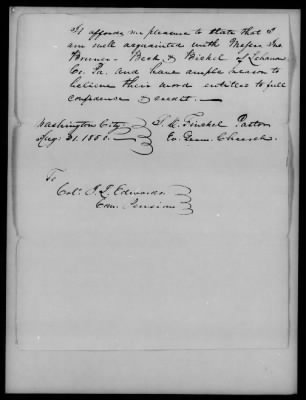 It affords me pleasure to state that I
am well acquainted with Messrs Jno
Bruner - Beck & Bickel of Lebanon
Co. Pa. and have ample reason to
believe their word entitled to full
confidence & credit. —
Washington City S. D. Finckel Pastor
Aug. 21. 1850. Ev. Germ. Church.
To
Col. J. L. Edwards
Com. Pension